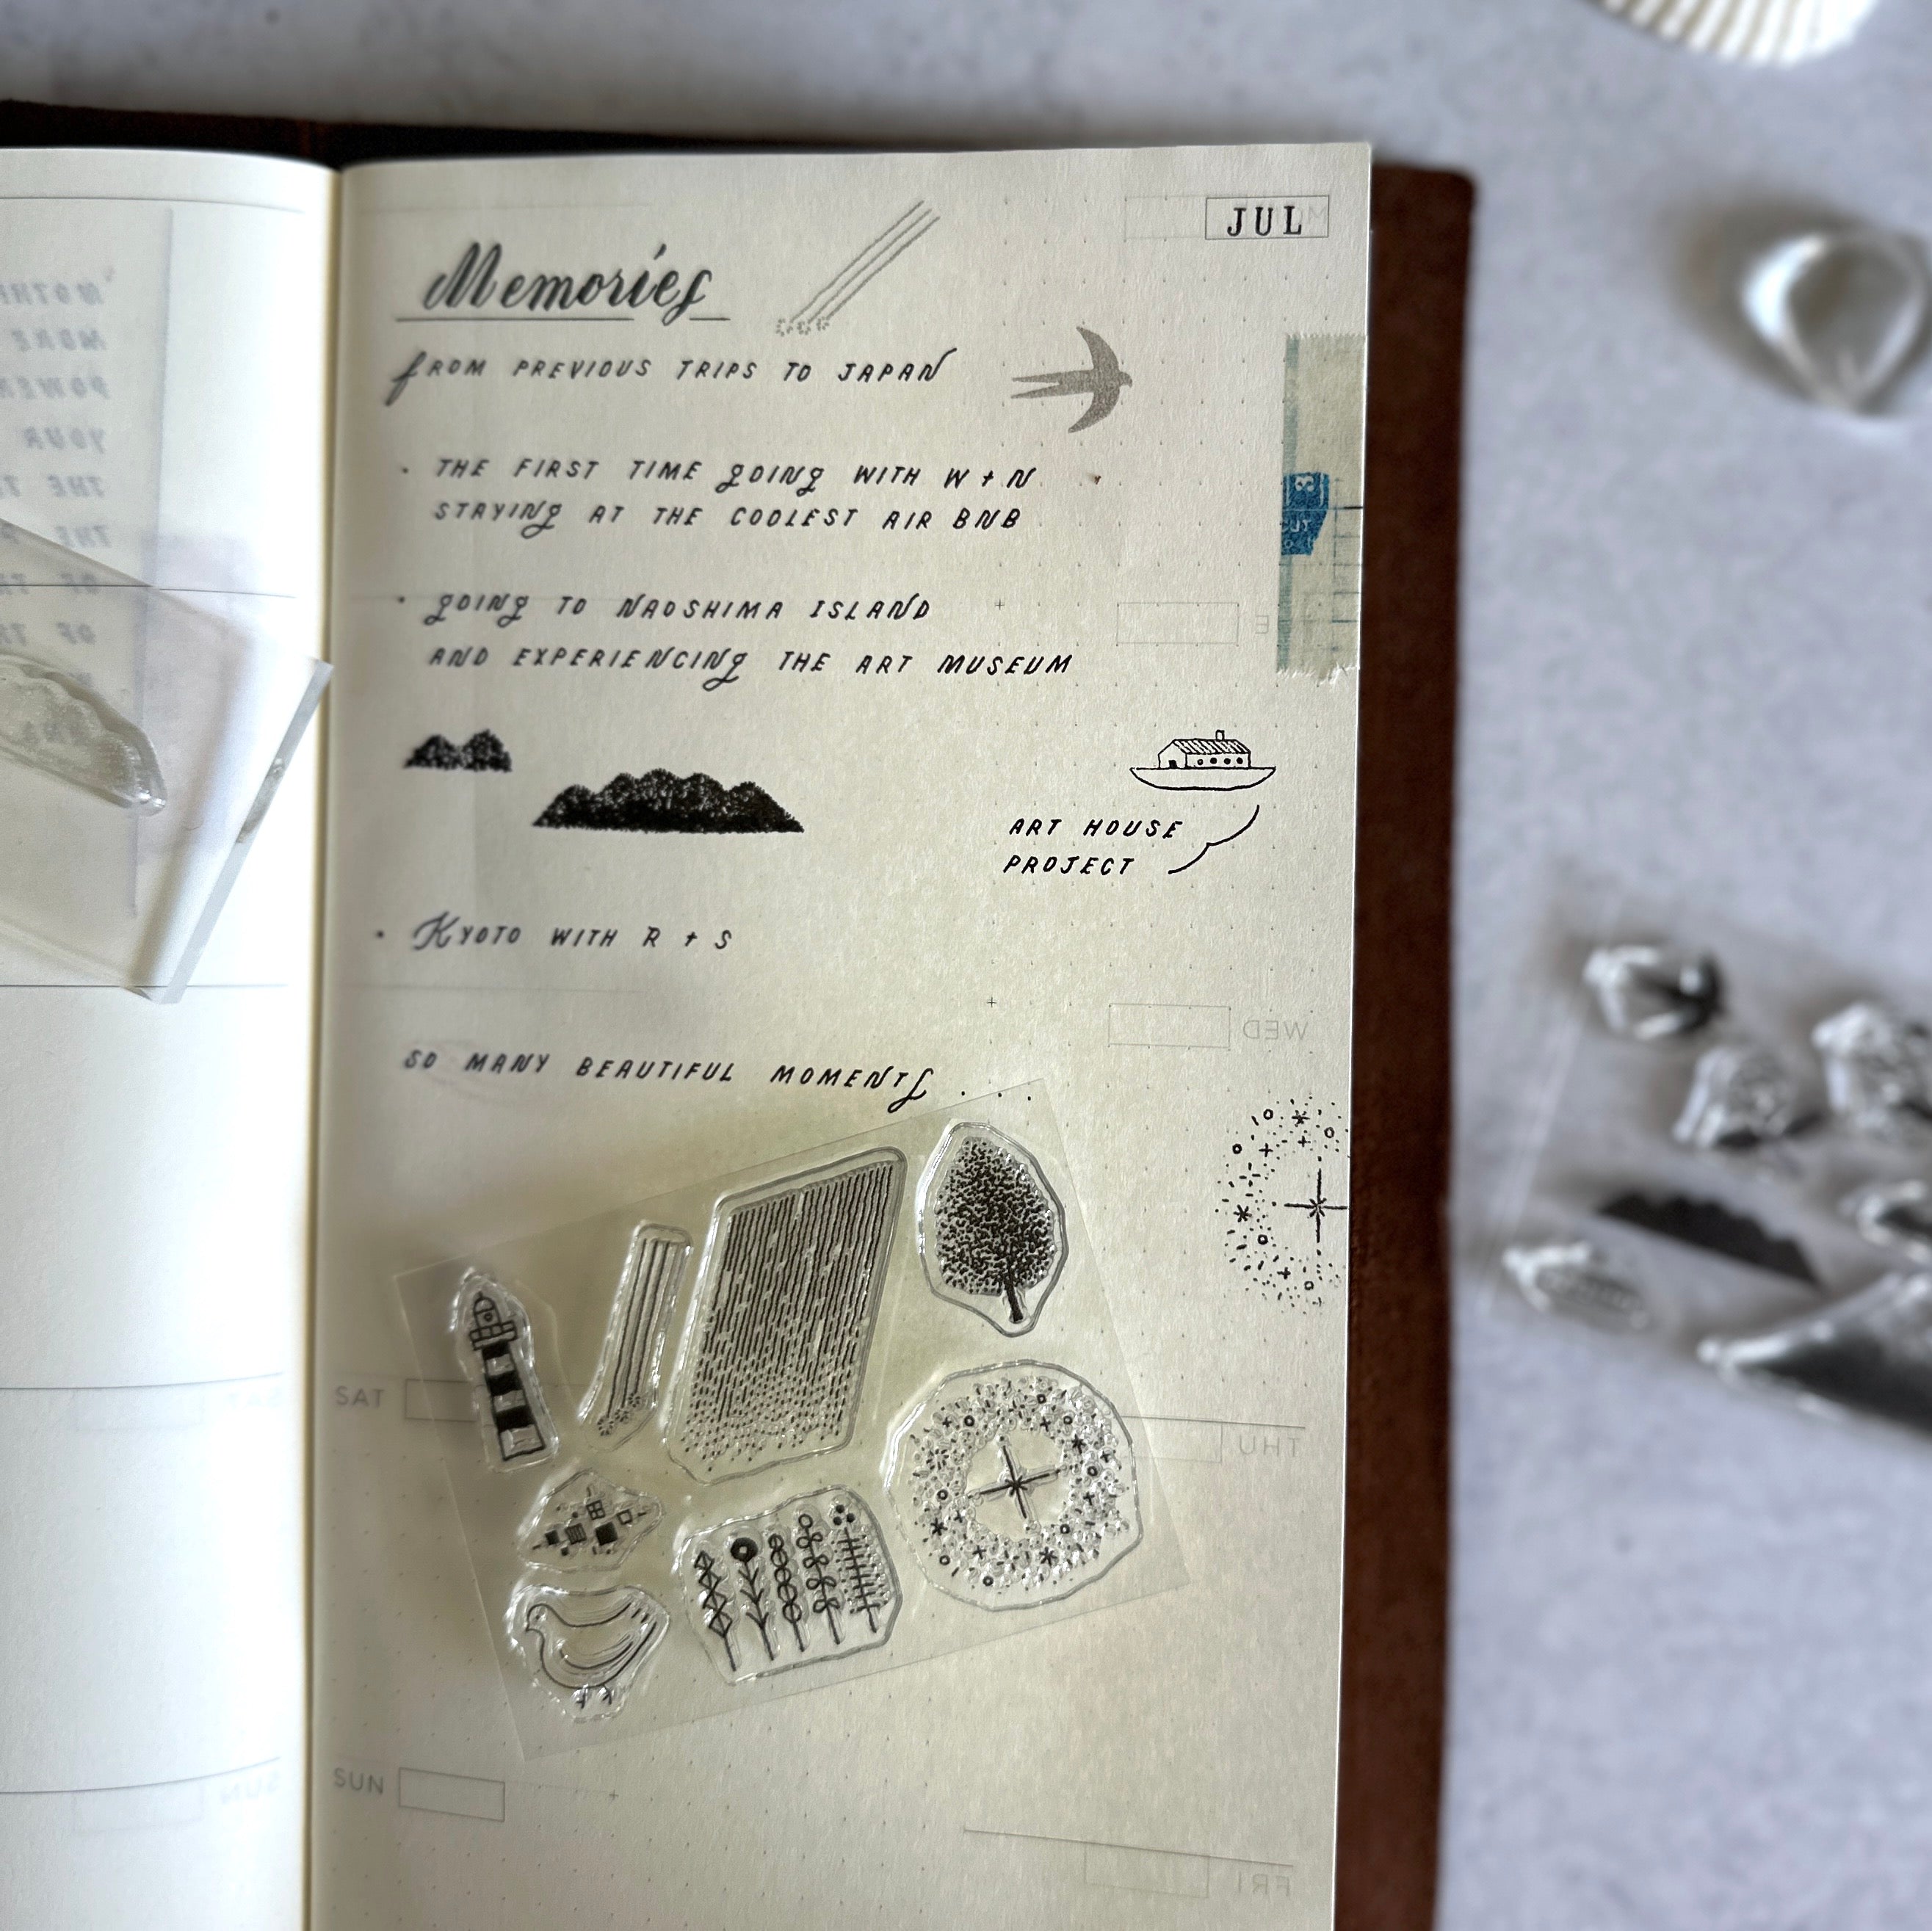 JUL
Memories
FROM PREVIOUS TRIPS TO JAPAN
· THE FIRST TIME GOING WITH W + N
STAYING AT THE COOLEST AIR BNB
· GOING TO NAOSHIMA ISLAND
AND EXPERIENCING THE ART MUSEUM
ART HOUSE
PROJECT
· KYOTO WITH R + S
WED
SO MANY BEAUTIFUL MOMENTS....
SAT
THU
SUN
FRI